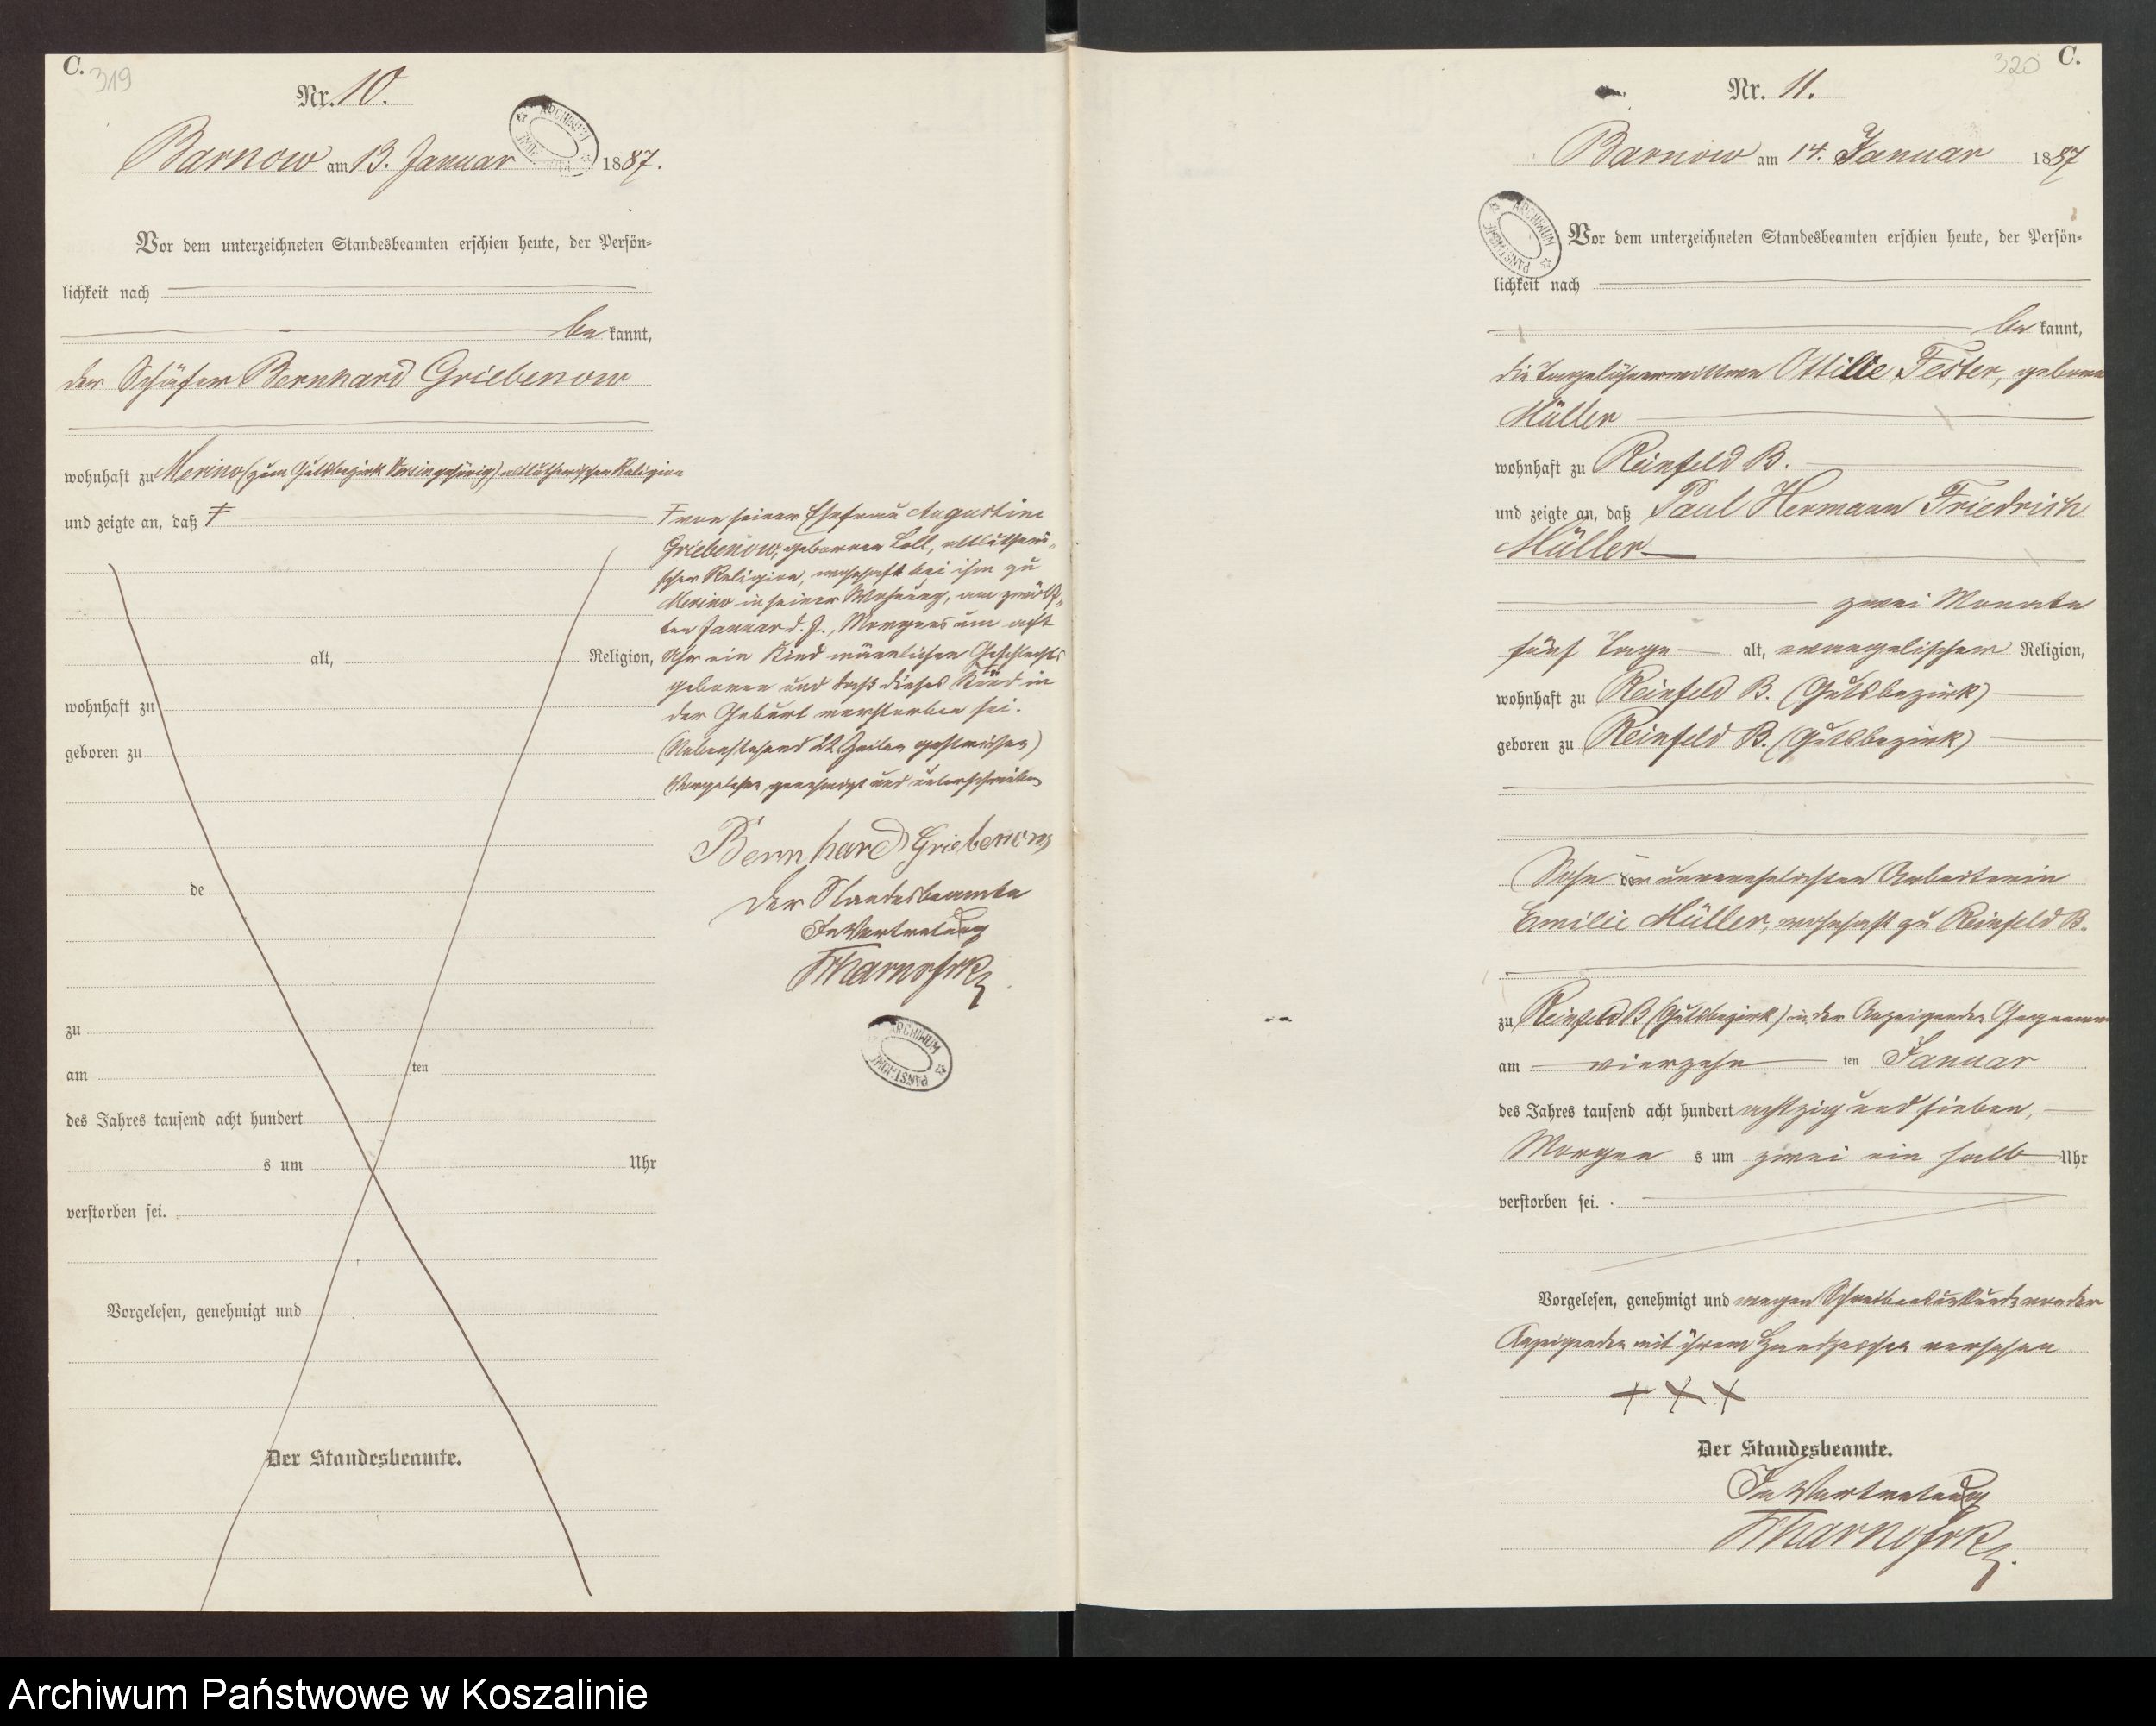 C.
319
Nr. 10.
ARCHIWUM
Barnow am 13. Januar 1887.
Vor dem unterzeichneten Standesbeamten erschien heute, der Persön-
lichkeit nach
be kannt,
der Schäfer Bernhard Griebenow
wohnhaft zu Merino (zum Gutsbezirk Versin gehörig) altlutherischer Religion
und zeigte an, daß ‡
alt, Religion,
wohnhaft zu
geboren zu
de
zu
am ten
des Jahres tausend acht hundert
s um Uhr
verstorben sei.
Vorgelesen, genehmigt und
Der Standesbeamte.
‡ von seiner Ehefrau Augustine
Griebenow, geborenen Loll, altlutheri-
scher Religion, wohnhaft bei ihm zu
Merino in seiner Wohnung, am zwölf-
ten Januar d. J., Morgens um acht
Uhr ein Kind männlichen Geschlechts
geboren und daß dieses Kind in
der Geburt verstorben sei.
(Nebenstehend 22 Zeilen gestrichen)
Vorgelesen, genehmigt und unterschrieben
Bernhard Griebenow
Der Standesbeamte
In Vertretung
ARCHIWUM
PAŃSTWOWE
320
C.
Nr. 11.
Barnow am 14. Januar 1887
ARCHIWUM
PAŃSTWOWE
Vor dem unterzeichneten Standesbeamten erschien heute, der Persön-
lichkeit nach
be kannt,
die Tagelöhnerwittwe Ottilie Fester, geborene
Müller
wohnhaft zu Reinfeld B.
und zeigte an, daß Paul Hermann Friedrich
Müller
zwei Monate
fünf Tage alt, evangelischer Religion,
wohnhaft zu Reinfeld B. (Gutsbezirk)
geboren zu Reinfeld B. (Gutsbezirk)
Sohn der unverehelichten Arbeiterin
Emilie Müller, wohnhaft zu Reinfeld B.
zu Reinfeld B (Gutsbezirk) in der Anzeigenden Gegenwart
am vierzehn ten Januar
des Jahres tausend acht hundert achtzig und sieben,
Morgen s um zwei ein halb Uhr
verstorben sei.
Vorgelesen, genehmigt und wegen Schreibensunkunde von der
Anzeigenden mit ihrem Handzeichen versehen
+ + +
Der Standesbeamte.
In Vertretung
Archiwum Państwowe w Koszalinie